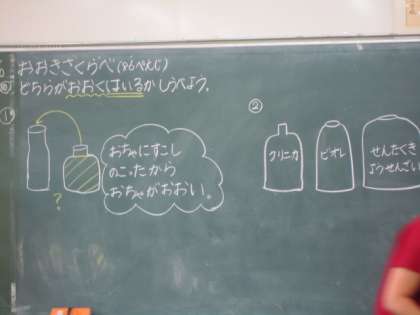 おおきさくらべ(96ぺえじ)
どちらがおおくはいるかしらべよう。
①
?
おちゃにすこし
のこったから
おちゃがおおい。
②
クリニカ
ビオレ
せんたくき
ようせんざい